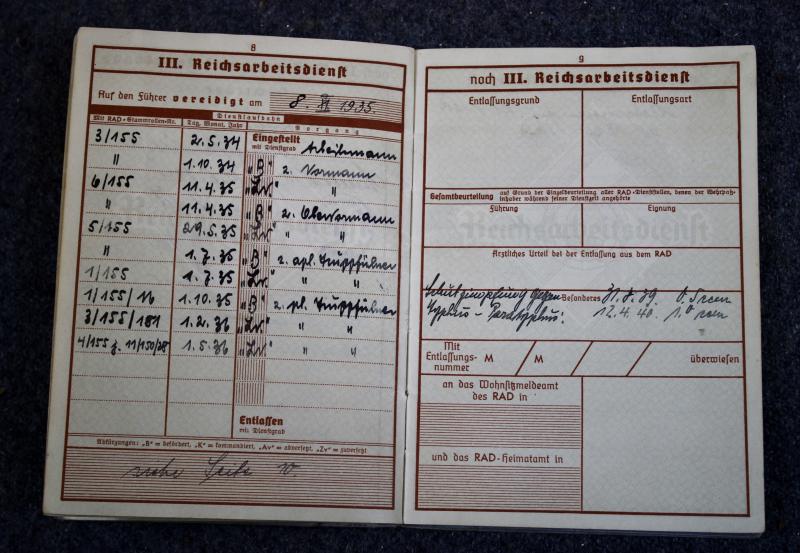 8
III. Reichsarbeitsdienst
Auf den Führer vereidigt am 8. XI 1935.
Dienstlaufbahn
Mit RAD-Stammrollen-Nr. Tag, Monat, Jahr Vorgang
3/155 2.5.34 Eingestellt mit Dienstgrad Arbeitsmann
" 1.10.34 „B" z. Vormann
6/155 11.4.35 „Zv" "
" 11.4.35 „B" z. Obervormann
5/155 29.5.35 „Zv" " "
1.7.35 „B" z. apl. Truppführer
1/155 1.7.35 „Zv" "
1/155/16 1.10.35 „B" z. pl. Truppführer
3/155/181 1.2.36 „Zv." " "
4/155 z. 11/150/28 1.5.36 „Zv." " "
Entlassen
mit Dienstgrad
Abkürzungen: „B" = befördert, „K" = kommandiert, „Av" = abversetzt, „Zv" = zuversetzt
siehe Seite 10.
9
noch III. Reichsarbeitsdienst
Entlassungsgrund Entlassungsart
Gesamtbeurteilung auf Grund der Einzelbeurteilung aller RAD-Dienststellen, denen der Wehrpaß-
inhaber während seiner Dienstzeit angehörte
Führung Eignung
Ärztliches Urteil bei der Entlassung aus dem RAD
Schutzimpfung gegen Besonderes 31.8.39. 0.5 ccm
Typhus - Paratyphus: 12.4.40. 1.0 ccm
Mit
Entlassungs-
nummer M / M / / / überwiesen
an das Wohnsitzmeldeamt
des RAD in
und das RAD-Heimatamt in